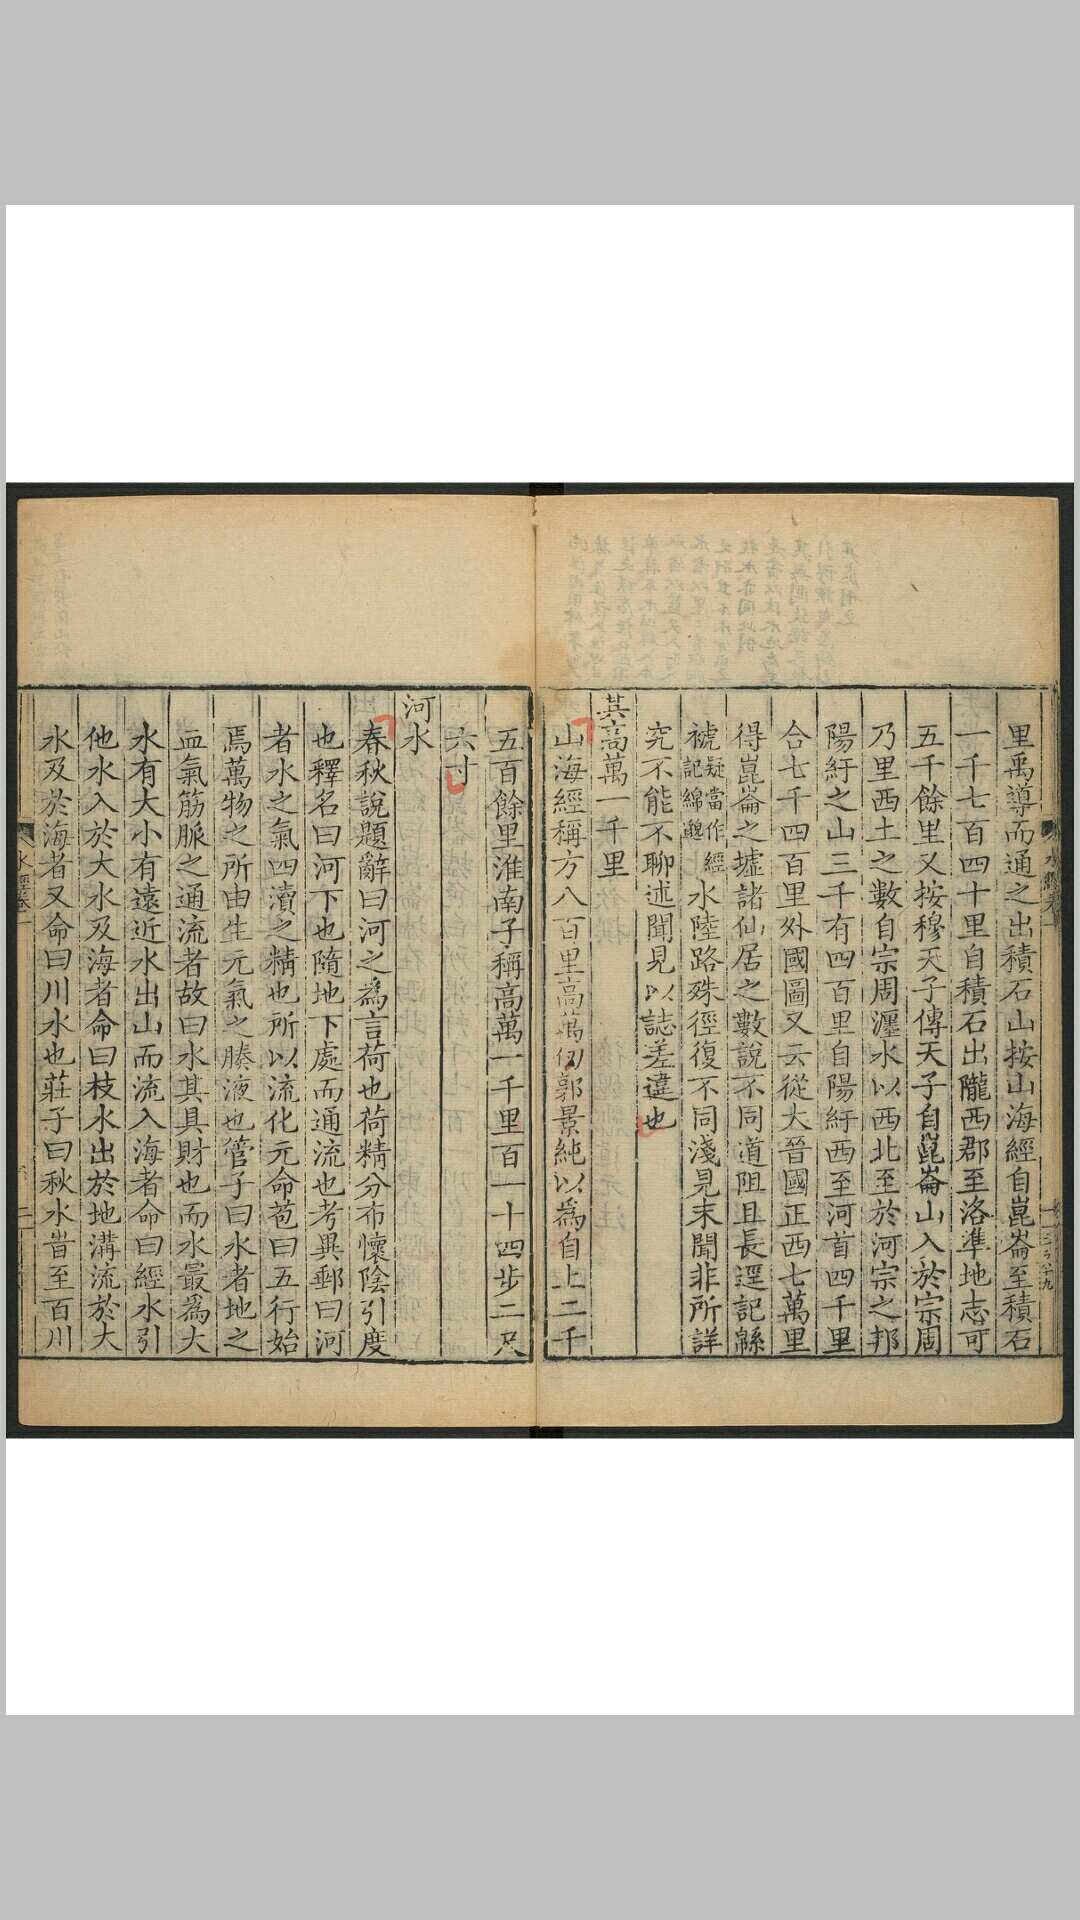 里禹導而通之出積石山按山海經自崑崙至積石
一千七百四十里自積石出隴西郡至洛準地志可
五千餘里又按穆天子傳天子自崑崙山入於宗周
乃里西土之數自宗周瀍水以西北至於河宗之邦
陽紆之山三千有四百里自陽紆西至河首四千里
合七千四百里外國圖又云從大晉國正西七萬里
得崑崙之墟諸仙居之數說不同道阻且長逕記緜
褫疑當作經記綿邈水陸路殊徑復不同淺見末聞非所詳
究不能不聊述聞見以誌差違也
其高萬一千里
山海經稱方八百里高萬仞郭景純以為自上二千
五百餘里淮南子稱高萬一千里百一十四步二尺
六寸
河水
春秋說題辭曰河之為言荷也荷精分布懷陰引度
也釋名曰河下也隨地下處而通流也考異郵曰河
者水之氣四瀆之精也所以流化元命苞曰五行始
焉萬物之所由生元氣之腠液也管子曰水者地之
血氣筋脈之通流者故曰水其具財也而水最為大
水有大小有遠近水出山而流入海者命曰經水引
他水入於大水及海者命曰枝水出於地溝流於大
水及於海者又命曰川水也莊子曰秋水旹至百川
水經卷一